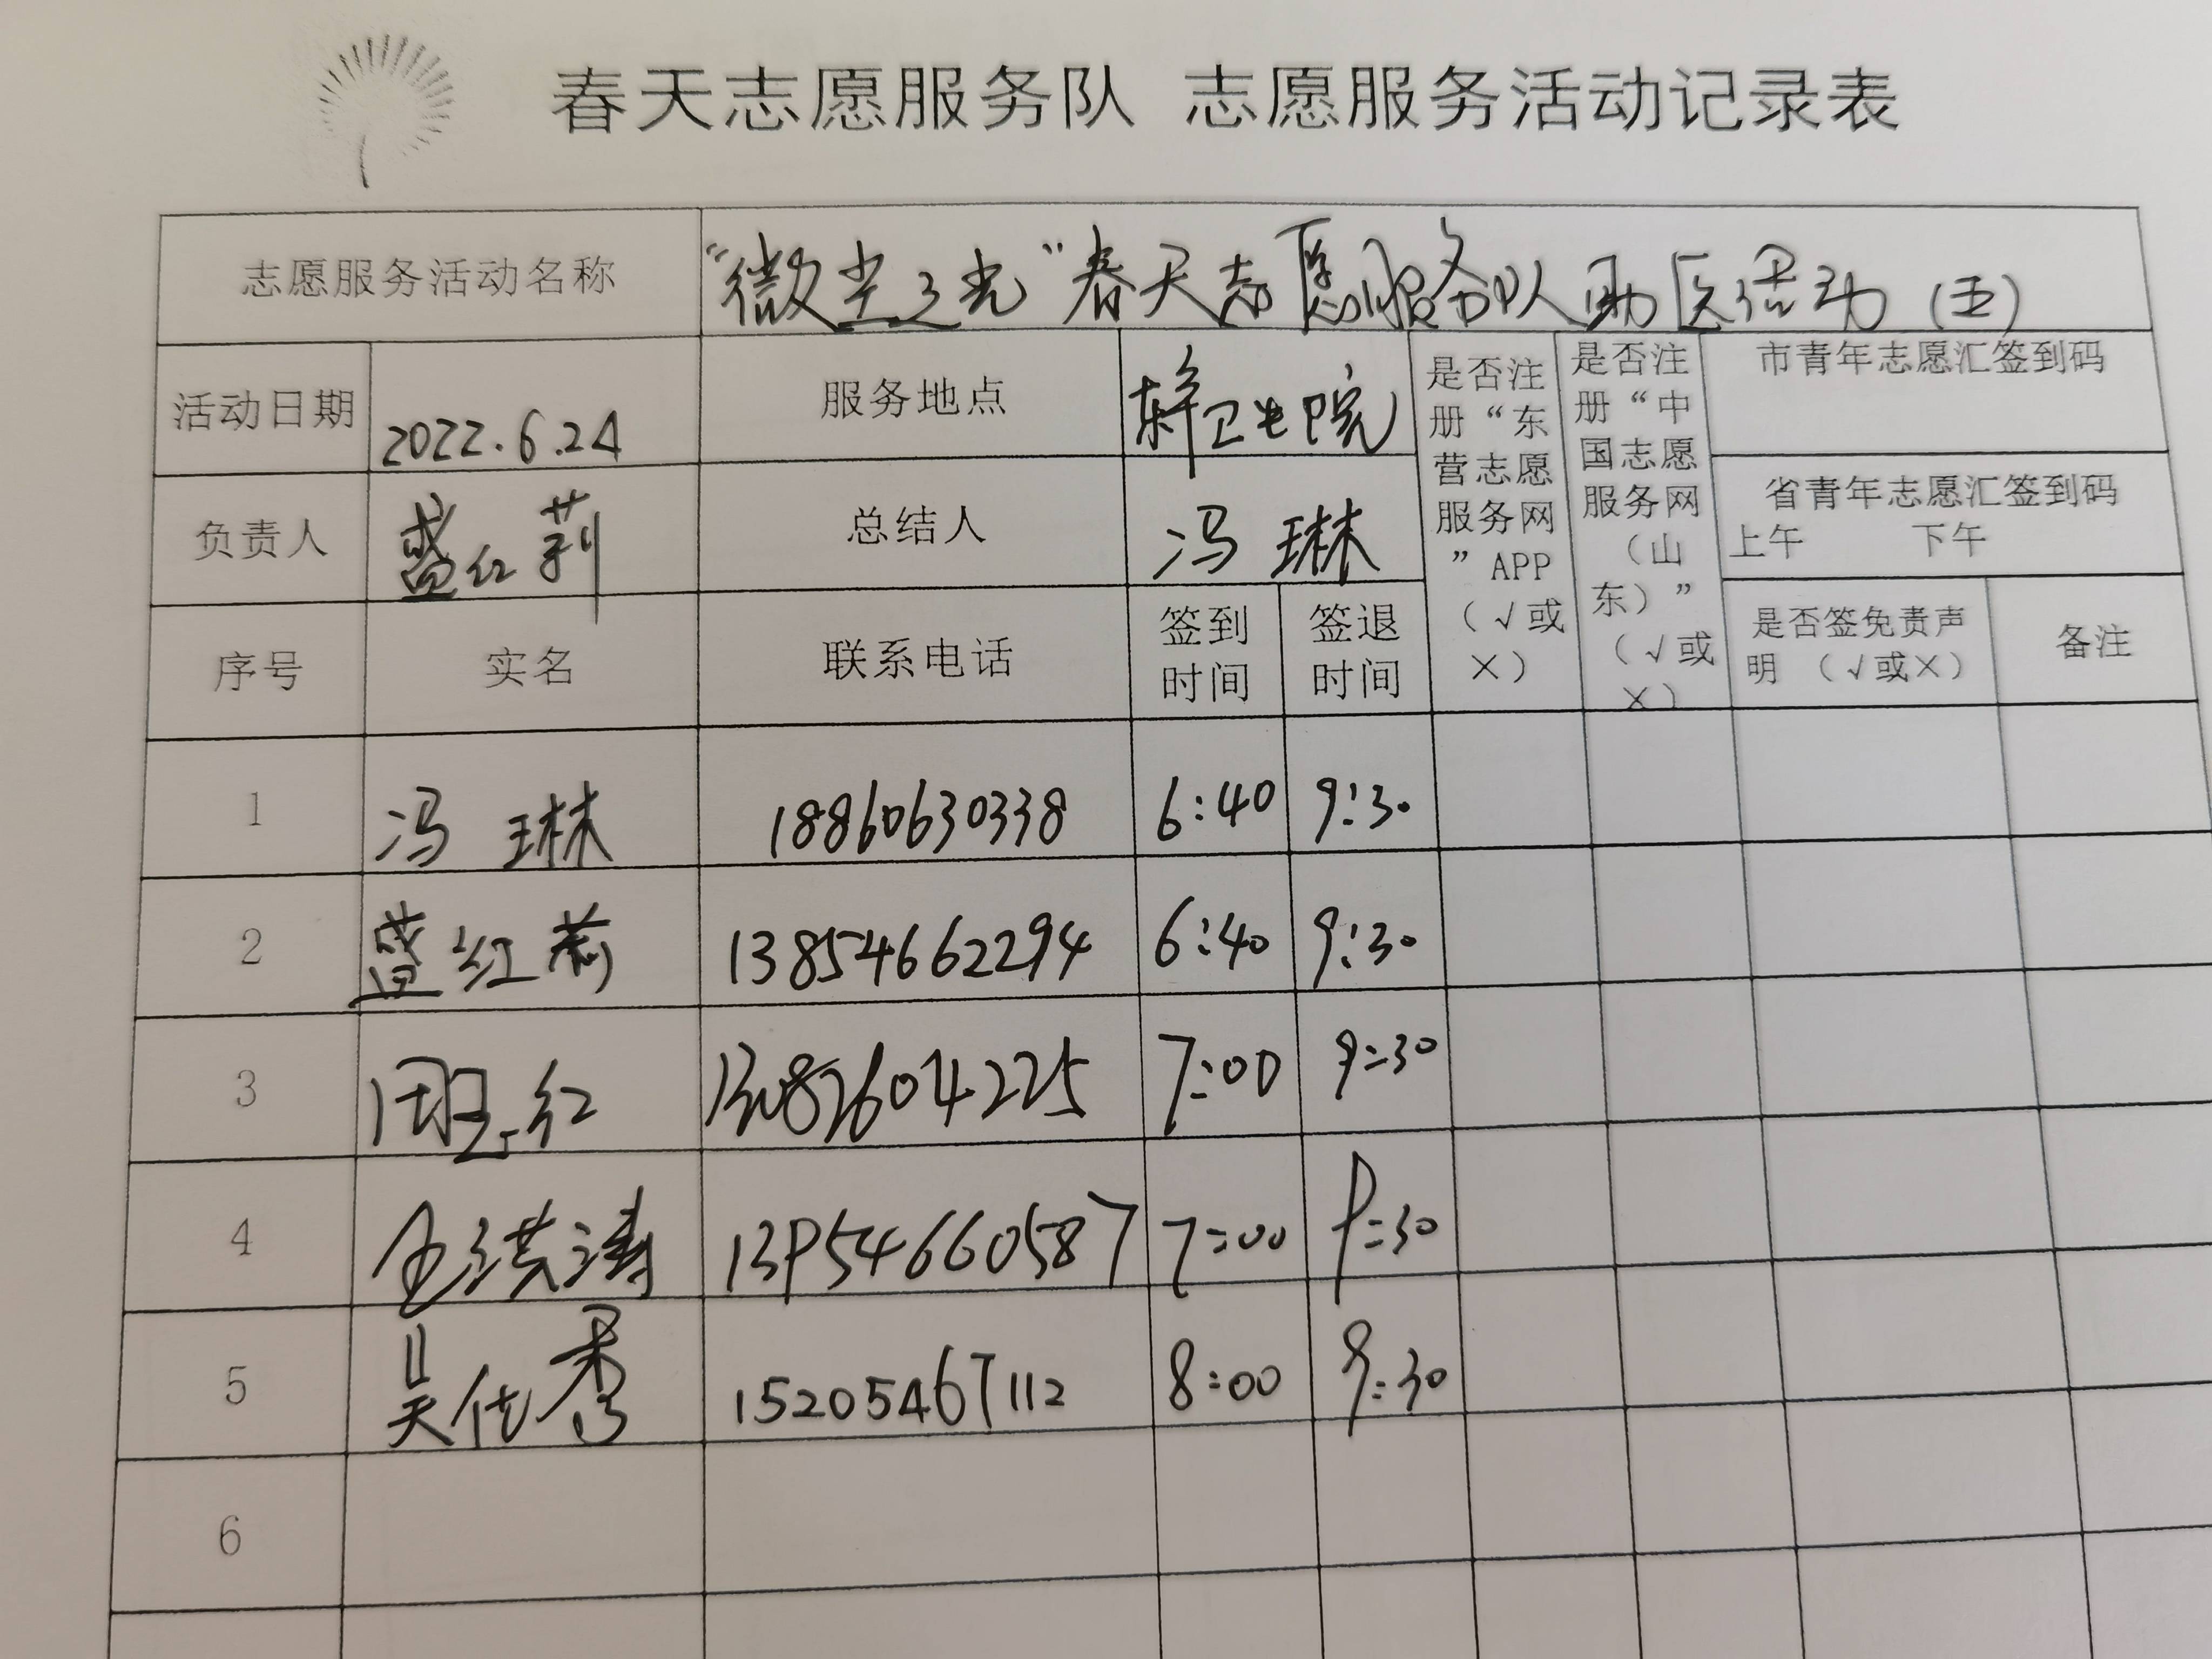 春天志愿服务队 志愿服务活动记录表
志愿服务活动名称 “微尘之光”春天志愿服务队助医活动（五）
活动日期 2022.6.24 服务地点 辛卫生院
是否注册“东营志愿服务网”APP（√或×）
是否注册“中国志愿服务网（山东）”（√或×）
市青年志愿汇签到码
负责人 盛红莉 总结人 冯琳
省青年志愿汇签到码
上午 下午
序号 实名 联系电话 签到时间 签退时间 是否签免责声明（√或×） 备注
1 冯琳 18860630338 6:40 9:30
2 盛红莉 13854662294 6:40 9:30
3 周玉红 7:00 9:30
4 洪涛 13954660587 7:00 9:30
5 吴代秀 15205467112 8:00 9:30
6